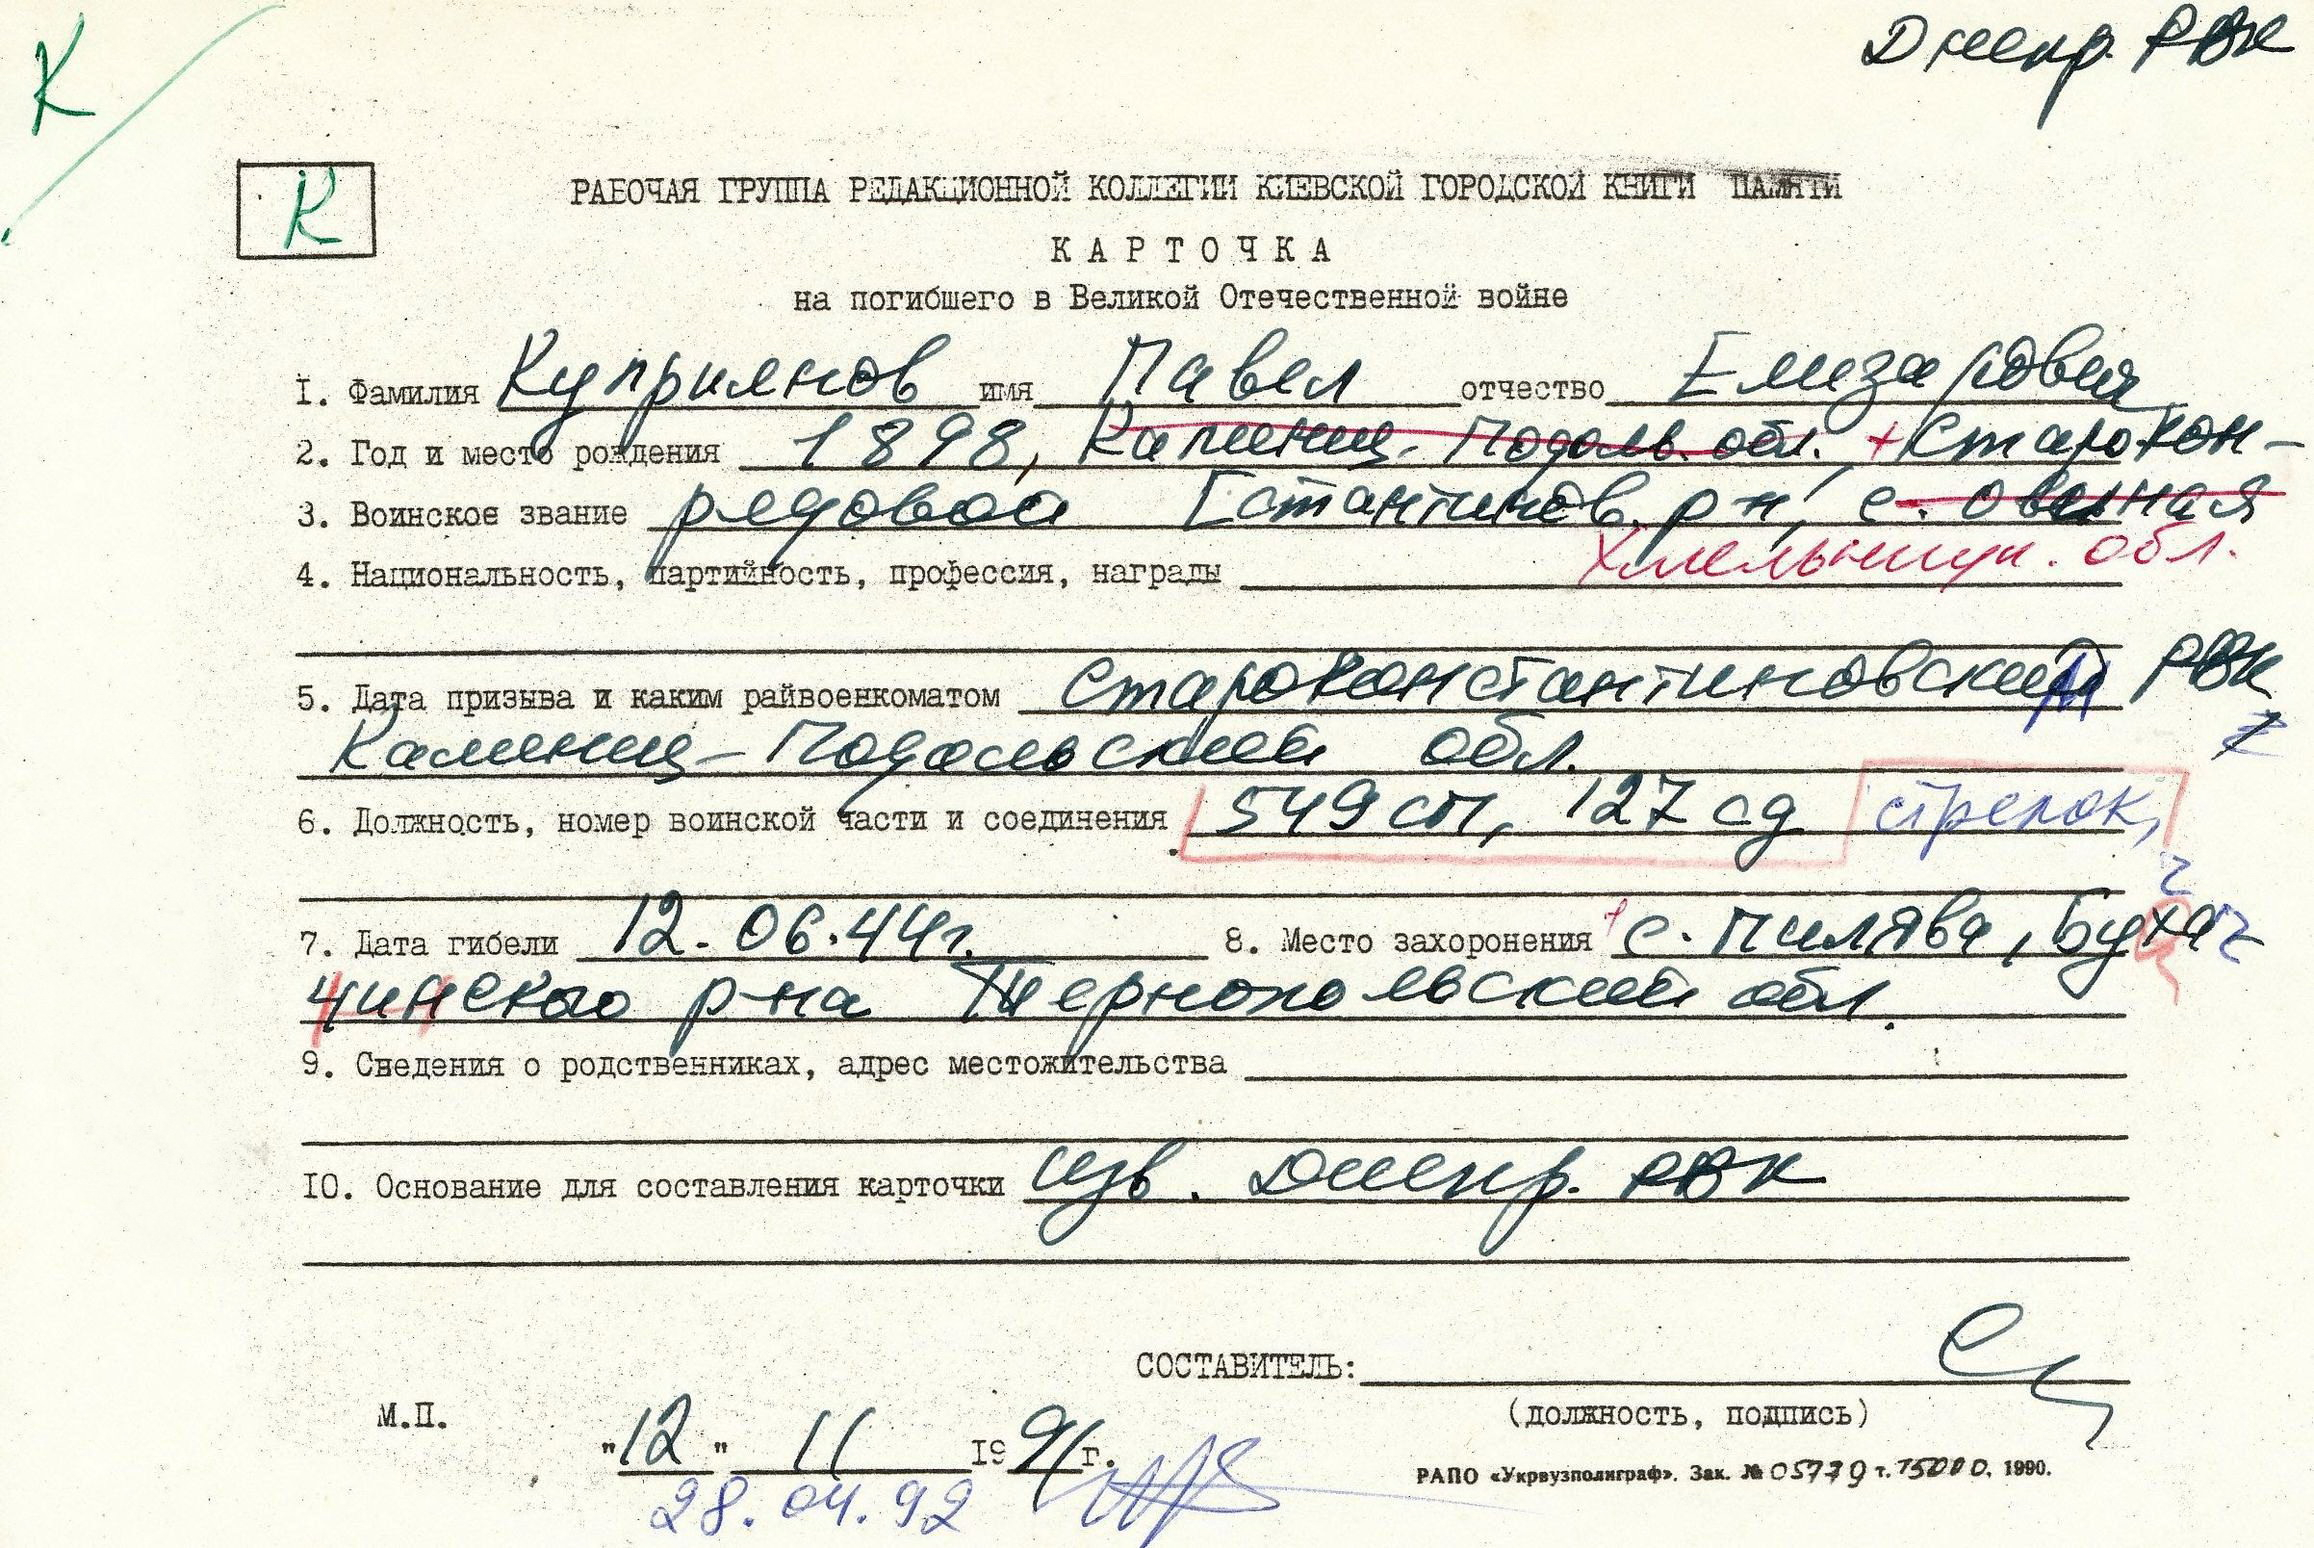 К
Днепр. РВК
К
РАБОЧАЯ ГРУППА РЕДАКЦИОННОЙ КОЛЛЕГИИ КИЕВСКОЙ ГОРОДСКОЙ КНИГИ ПАМЯТИ
КАРТОЧКА
на погибшего в Великой Отечественной войне
1. Фамилия Куприянов имя Павел отчество Елизарович
2. Год и место рождения 1898, Каменец-Подоль. обл. + Старокон-
3. Воинское звание рядовой [стантинов. р-н, с.
Хмельницк. обл.
4. Национальность, партийность, профессия, награды
5. Дата призыва и каким райвоенкоматом Староконстантиновским РВК
Каменец-Подольской обл.
6. Должность, номер воинской части и соединения 549 сп, 127 сд стрелок,
7. Дата гибели 12.06.44г. 8. Место захоронения с. Пилява, Буча
чинского р-на Тернопольской обл.
9. Сведения о родственниках, адрес местожительства
10. Основание для составления карточки изв. Днепр. РВК
СОСТАВИТЕЛЬ:
(должность, подпись)
М.П.
"12" 11 1991г.
28.04.92
РАПО «Укрвузполиграф». Зак. № 05779 т. 15000. 1990.